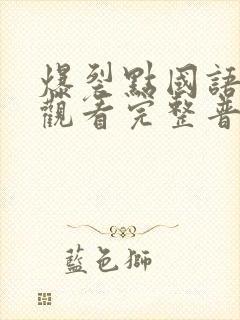 爆裂點國語
觀看完整普
藍色獅